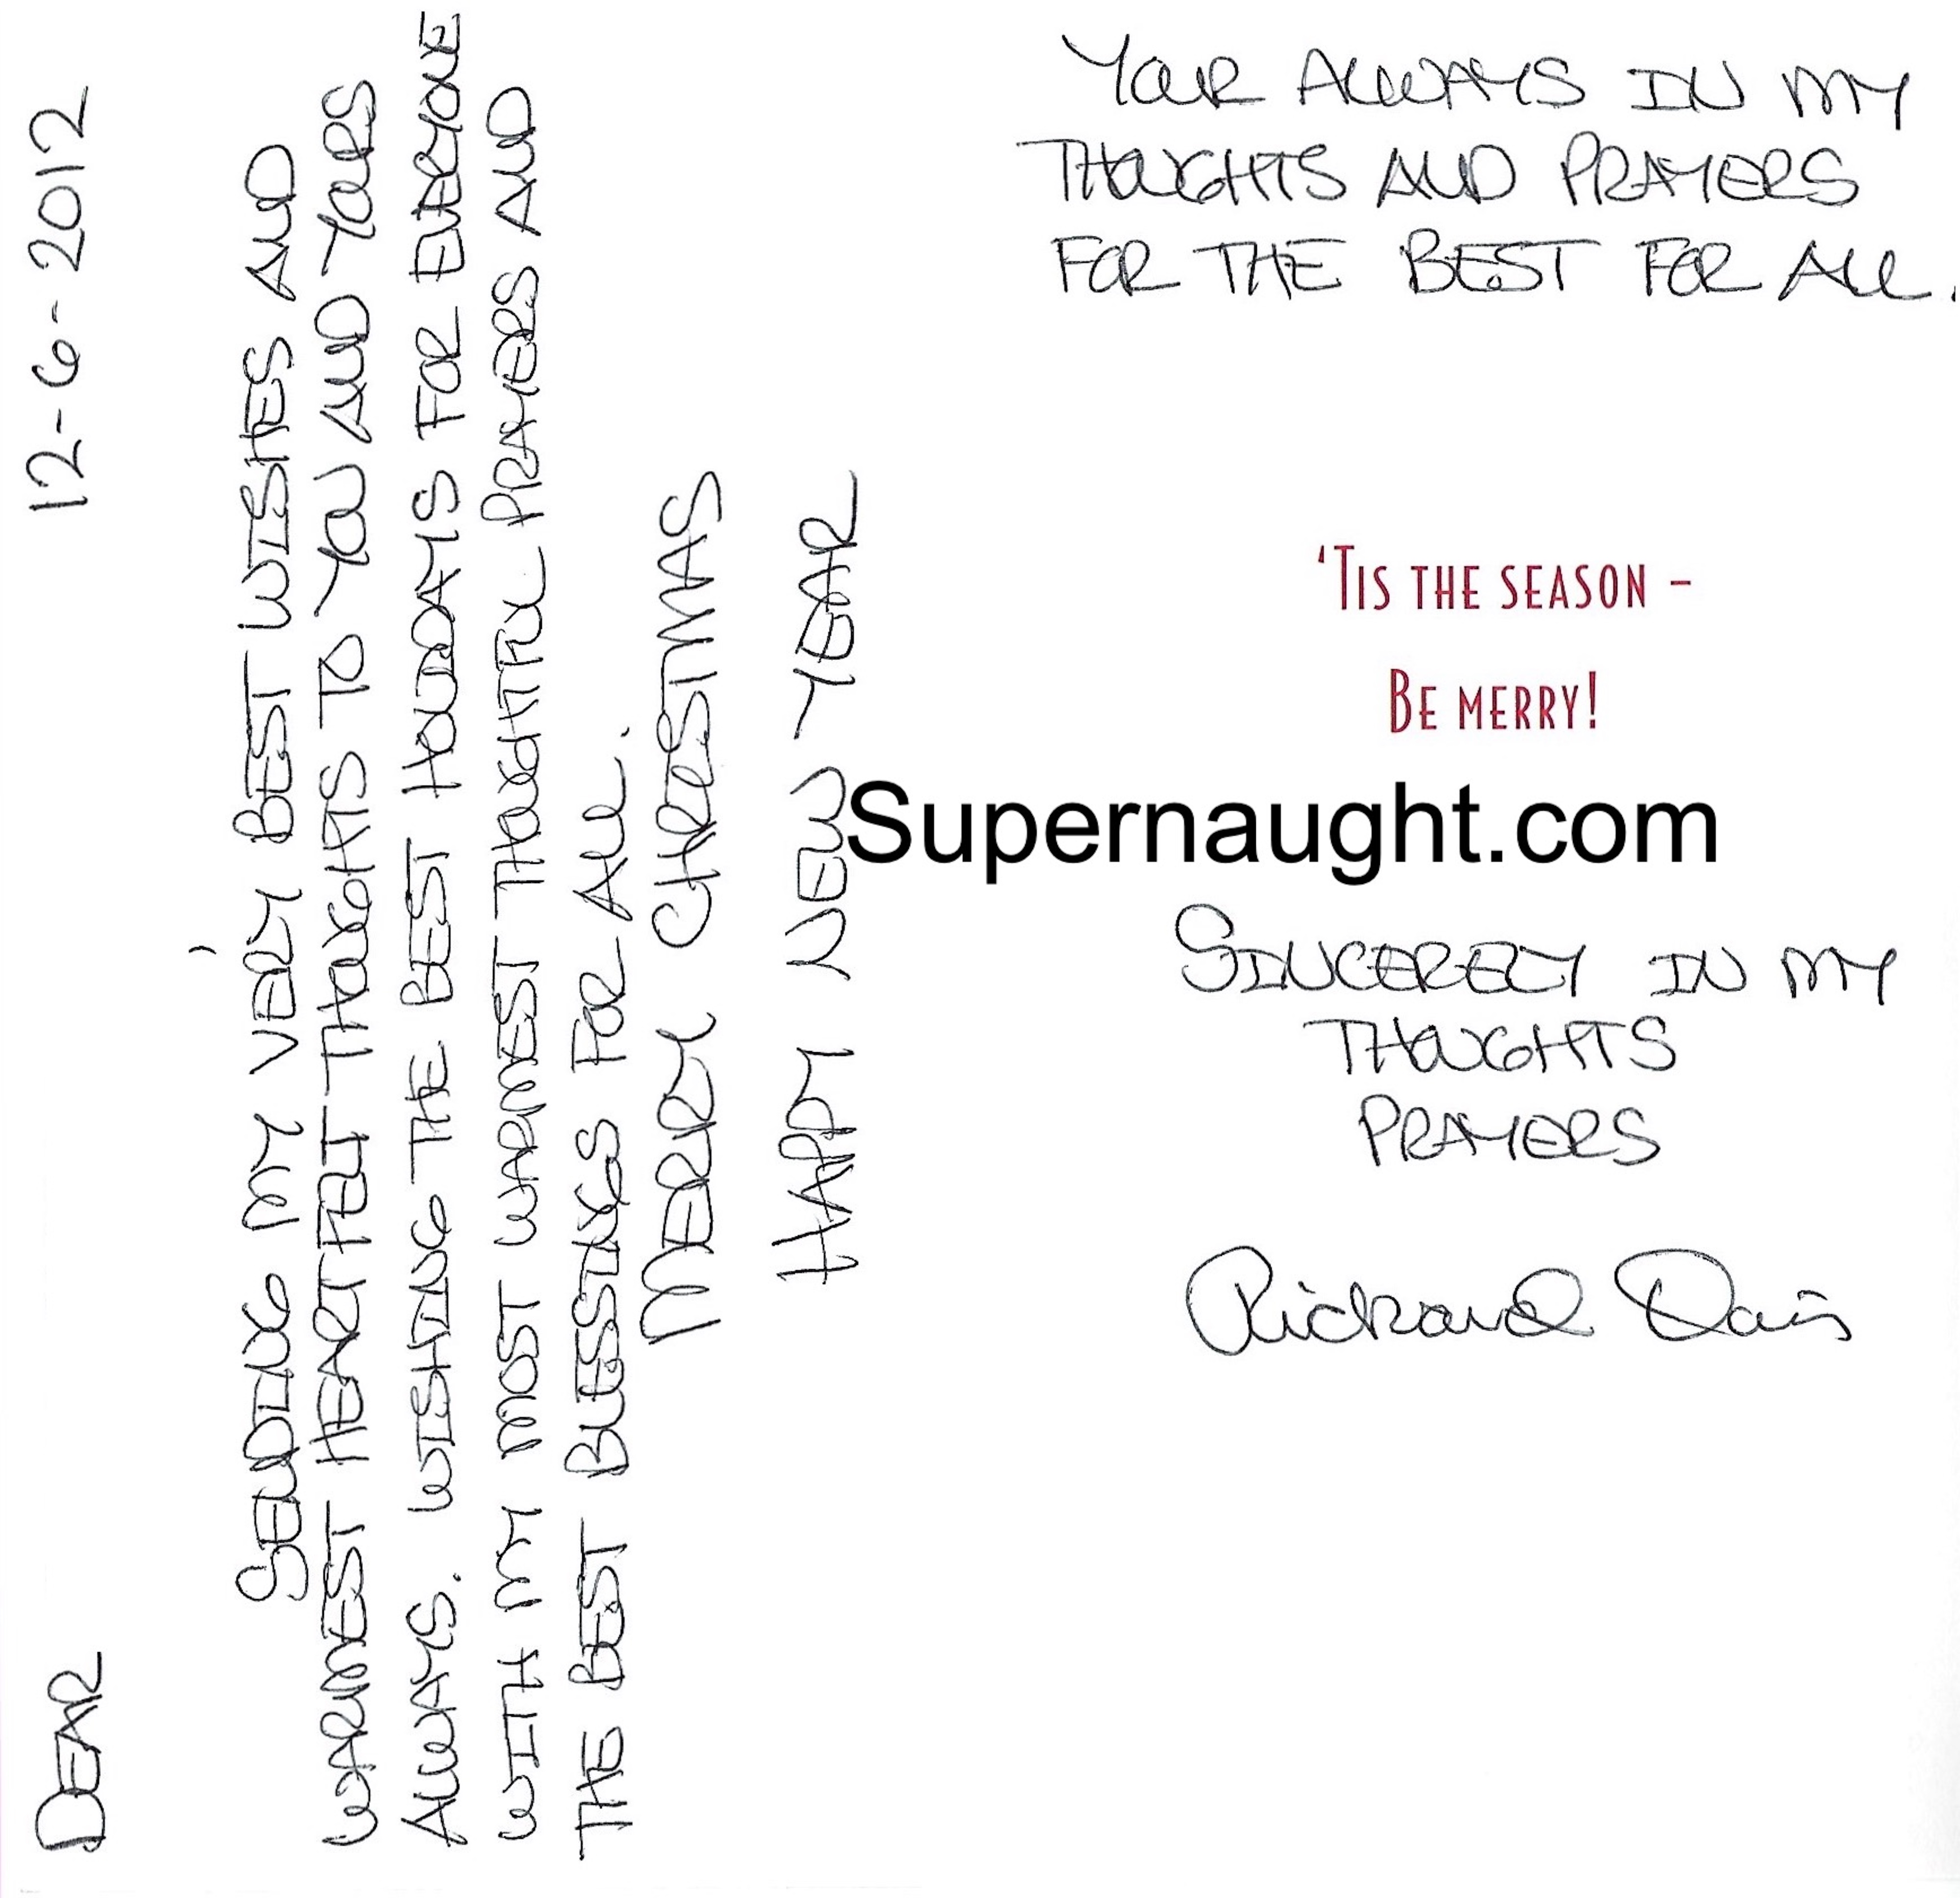 DEAR 12-6-2012
,
SENDING MY VERY BEST WISHES AND
WARMEST HEARTFELT THOUGHTS TO YOU AND YOURS
ALWAYS. WISHING THE BEST HOLIDAYS FOR EVERYONE
WITH MY MOST WARMEST THOUGHTFUL PRAYERS AND
THE BEST BLESSINGS FOR ALL.
MERRY CHRISTMAS
HAPPY NEW YEAR
YOUR ALWAYS IN MY
THOUGHTS AND PRAYERS
FOR THE BEST FOR ALL.
‘TIS THE SEASON –
BE MERRY!
Supernaught.com
SINCERELY IN MY
THOUGHTS
PRAYERS
Richard Davis